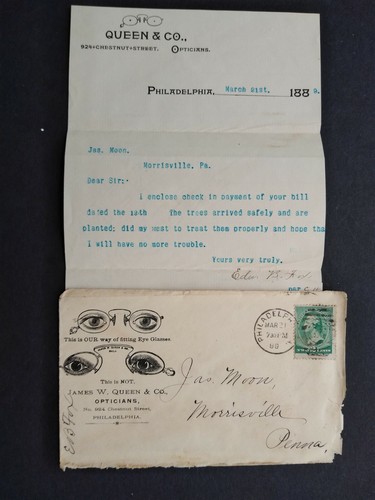 QUEEN & CO.,
924 CHESTNUT STREET. OPTICIANS.
PHILADELPHIA, March 21st, 1889.
Jas. Moon.
Morrisville, Pa.
Dear Sir:-
I enclose check in payment of your bill
dated the The trees arrived safely and are
planted; did my most to treat them properly and hope that
I will have no more trouble.
Yours very truly.
This is OUR way of fitting Eye Glasses
This is NOT.
JAMES W. QUEEN & CO.,
OPTICIANS,
No. 924 Chestnut Street,
PHILADELPHIA.
PHILADELPH
MAR 21
Jas. Moon,
Morrisville
Penna